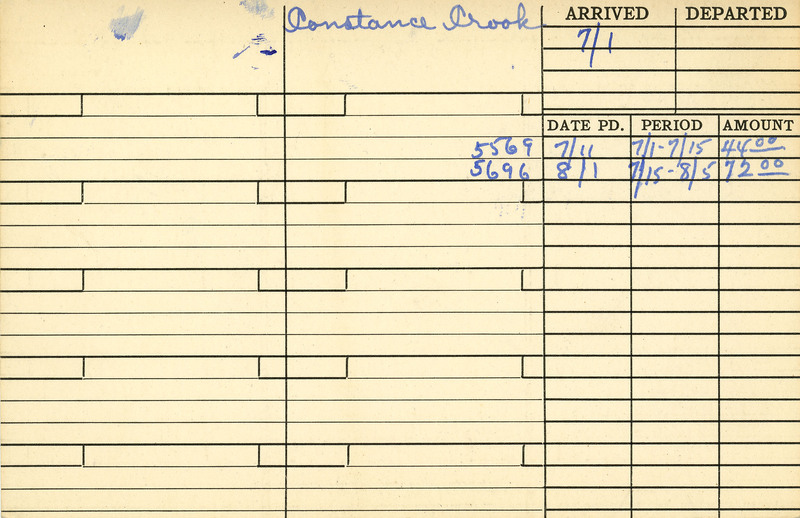 Constance Crook
ARRIVED DEPARTED
7/1
DATE PD. PERIOD AMOUNT
5569 7/11 7/1-7/15 44 00
5696 8/1 7/15-8/5 72 00